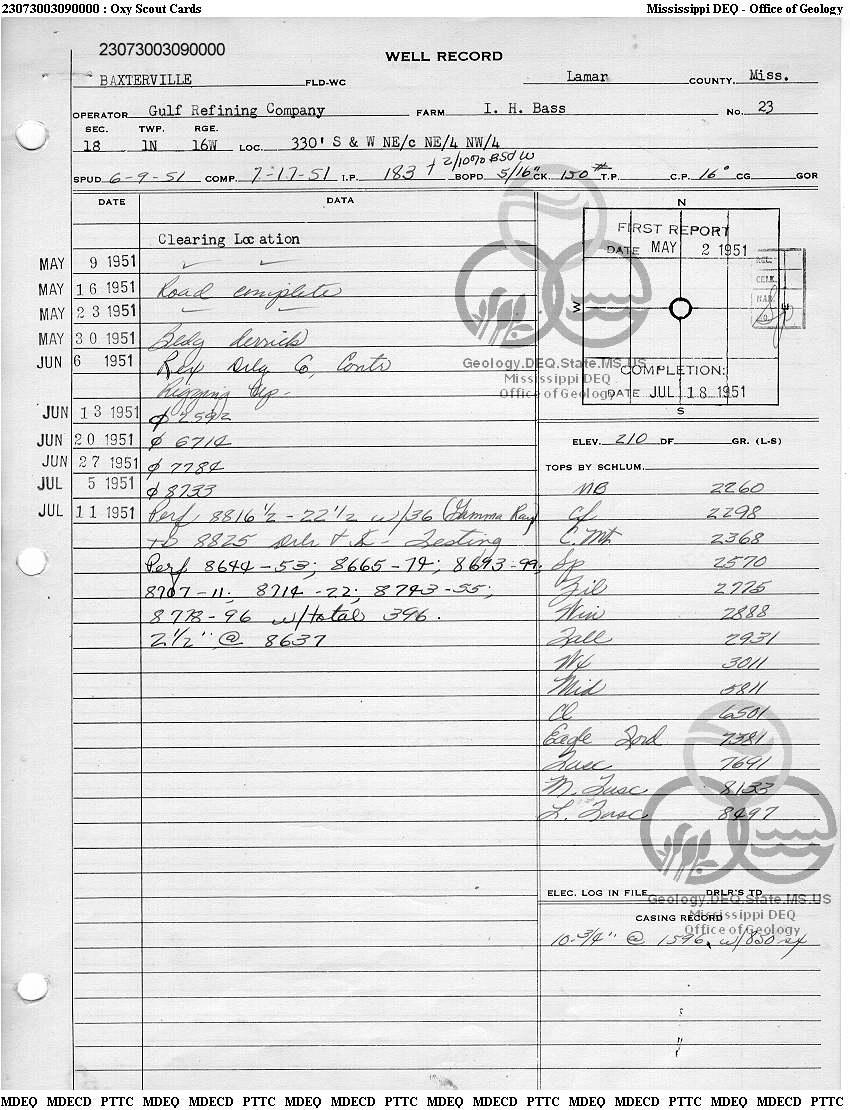 23073003090000 : Oxy Scout Cards Mississippi DEQ - Office of Geology
23073003090000
WELL RECORD
BAXTERVILLE FLD-WC Lamar COUNTY, Miss.
OPERATOR Gulf Refining Company FARM I. H. Bass No. 23
SEC. TWP. RGE.
18 1N 16W LOC. 330' S & W NE/c NE/4 NW/4
SPUD 6-9-51 COMP. 7-17-51 I.P. 183 + 2/10% BS&W BOPD 5/16" CK. 150# T.P. C.P. 16° CG GOR
DATE DATA
Clearing Location
MAY 9 1951
MAY 16 1951 Road complete
MAY 23 1951
MAY 30 1951 Bldg derrick
JUN 6 1951 Rex Drlg Co, Contr
Rigging Up -
JUN 13 1951 2592
JUN 20 1951 6714
JUN 27 1951 7784
JUL 5 1951 8733
JUL 11 1951 Perf 8816 1/2 - 22 1/2 w/36 (Gamma Ray)
TD 8825 Testing
Perf 8644-53; 8665-74; 8693-99;
8707-11; 8714-22; 8743-55;
8778-96 w/total 396.
2 1/2" @ 8637
N
FIRST REPORT
DATE MAY 2 1951
W
E
COMPLETION:
DATE JUL 18 1951
S
ELEV. 210 DF GR. (L-S)
TOPS BY SCHLUM.
MB 2260
Cf 2298
C. Mt 2368
Sp 2570
Zil 2775
Win 2888
Tall 2931
Wx 3011
Mid 5811
Cl 6501
Eagle Ford 7381
Tusc 7691
M. Tusc 8133
L. Tusc 8497
ELEC. LOG IN FILE DRLR'S TD
CASING RECORD
10-3/4" @ 1596, w/850 sx
Geology.DEQ.State.MS.US
Mississippi DEQ
Office of Geology
Geology.DEQ.State.MS.US
Mississippi DEQ
Office of Geology
MDEQ MDECD PTTC MDEQ MDECD PTTC MDEQ MDECD PTTC MDEQ MDECD PTTC MDEQ MDECD PTTC MDEQ MDECD PTTC